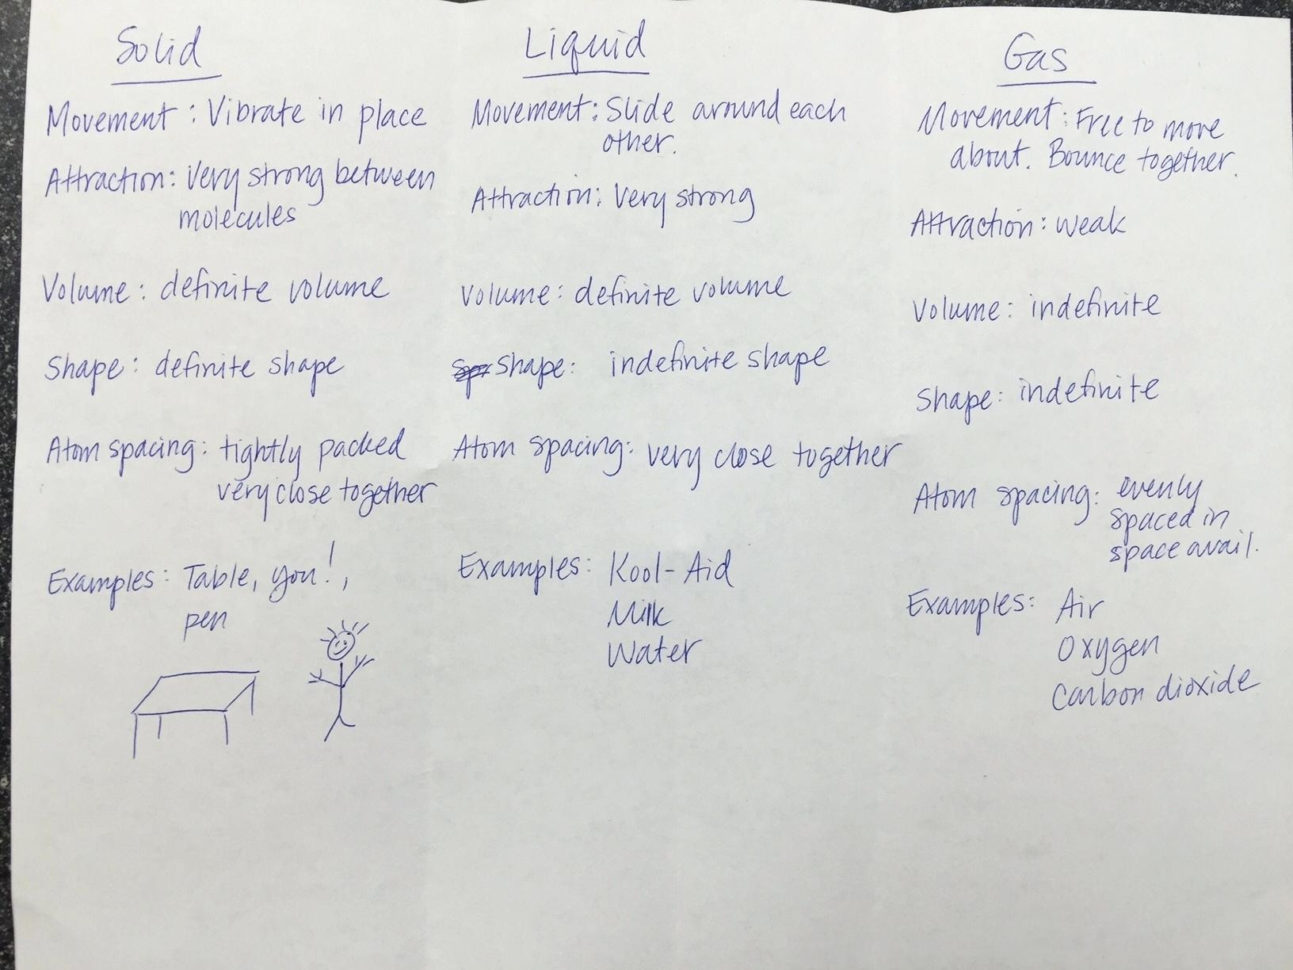 Solid
Movement: Vibrate in place
Attraction: Very strong between
molecules
Volume: definite volume
Shape: definite shape
Atom spacing: tightly packed
very close together
Examples: Table, you!,
pen
Liquid
Movement: Slide around each
other.
Attraction: Very strong
Volume: definite volume
Shape: indefinite shape
Atom spacing: very close together
Examples: Kool-Aid
Milk
Water
Gas
Movement: Free to move
about. Bounce together.
Attraction: weak
Volume: indefinite
Shape: indefinite
Atom spacing: evenly
spaced in
space avail.
Examples: Air
Oxygen
Carbon dioxide